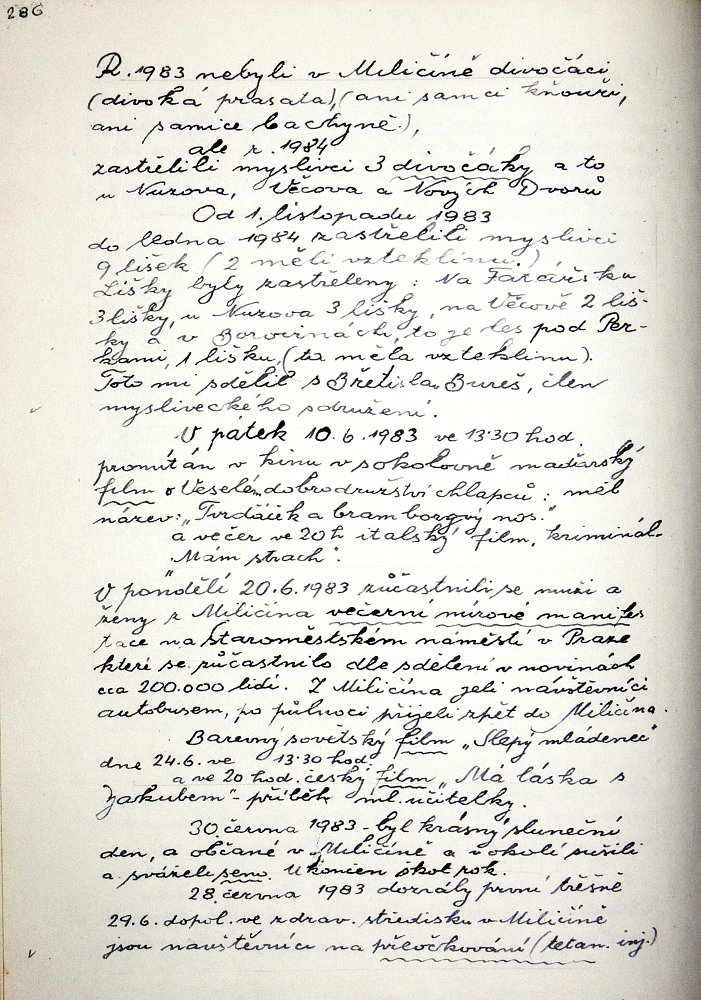 286
R. 1983 nebyli v Miličíně divočáci
(divoká prasata), (ani samci kňouři,
ani samice bachyně.),
ale r. 1984
zastřelili myslivci 3 divočáky a to
u Nuzova, Věčova a Nových Dvorů
Od 1. listopadu 1983
do ledna 1984 zastřelili myslivci
9 lišek (2 měli vzteklinu.)
Lišky byly zastřeleny: Na Farářsku
3 lišky, u Nuzova 3 lišky, na Věčově 2 liš-
ky a v Borovinách, to je les pod Per-
kami, 1 lišku, (ta měla vzteklinu).
Toto mi sdělil s Břetislav Bureš, člen
mysliveckého sdružení.
V pátek 10.6.1983 ve 13'30 hod.
promítán v kinu v sokolovně maďarský
film o Veselém dobrodružství chlapců: měl
název: „Tvrďáček a bramborový nos."
a večer ve 20h italský film, kriminál.
„Mám strach".
V pondělí 20.6.1983 zúčastnili se muži a
ženy z Miličína večerní mírové manifes
tace na Staroměstském náměstí v Praze
které se zúčastnilo dle sdělení v novinách
cca 200.000 lidí. Z Miličína jeli návštěvníci
autobusem, po půlnoci přijeli zpět do Miličína.
Barevný sovětský film „Slepý mládenec"
dne 24.6. ve 13'30 hod.
a ve 20 hod. český film „Má láska s
Jakubem" - příběh ml. učitelky.
30. června 1983 - byl krásný sluneční
den, a občané v Miličíně a v okolí sušili
a sváželi seno. Ukončen škol. rok.
28. června 1983 dozrály první třešně
29.6. dopol. ve zdrav. středisku v Miličíně
jsou návštěvníci na přeočkování (tetan. inj.)